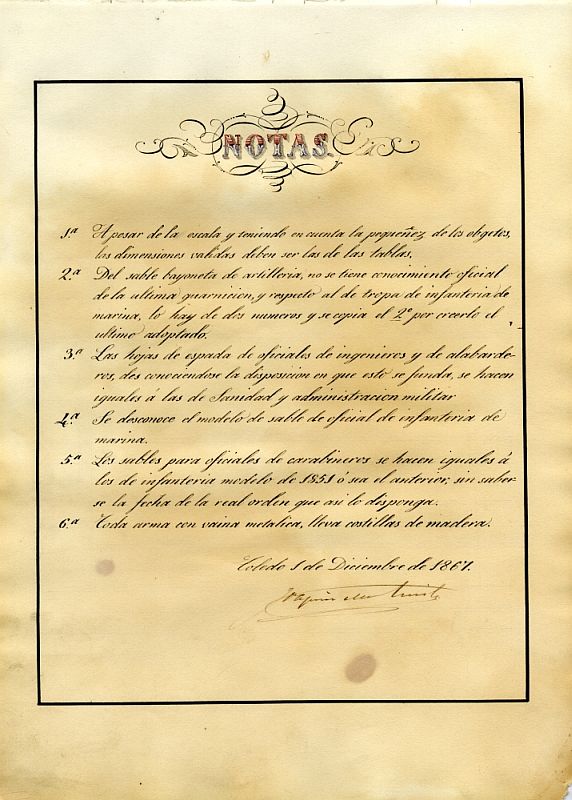 NOTAS.
1.ª Apesar de la escala y teniendo en cuenta la pequeñez de los objetos,
las dimensiones validas deben ser las de las tablas.
2.ª Del sable bayoneta de artilleria, no se tiene conocimiento oficial
de la ultima guarnicion, y respecto al de tropa de infanteria de
marina, lo hay de dos numeros y se copia el 2º por creerlo el
ultimo adoptado.
3.ª Las hojas de espada de oficiales de ingenieros y de alabarde-
ros, desconociendose la disposicion en que esto se funde, se hacen
iguales á las de Sanidad y administracion militar
4.ª Se desconoce el modelo de sable de oficial de infanteria de
marina.
5.ª Los sables para oficiales de carabineros se hacen iguales á
los de infanteria modelo de 1851 ó sea el anterior, sin saber-
se la fecha de la real orden que asi lo disponga.
6.ª Toda arma con vaina metalica, lleva costillas de madera.
Toledo 1 de Diciembre de 1867.